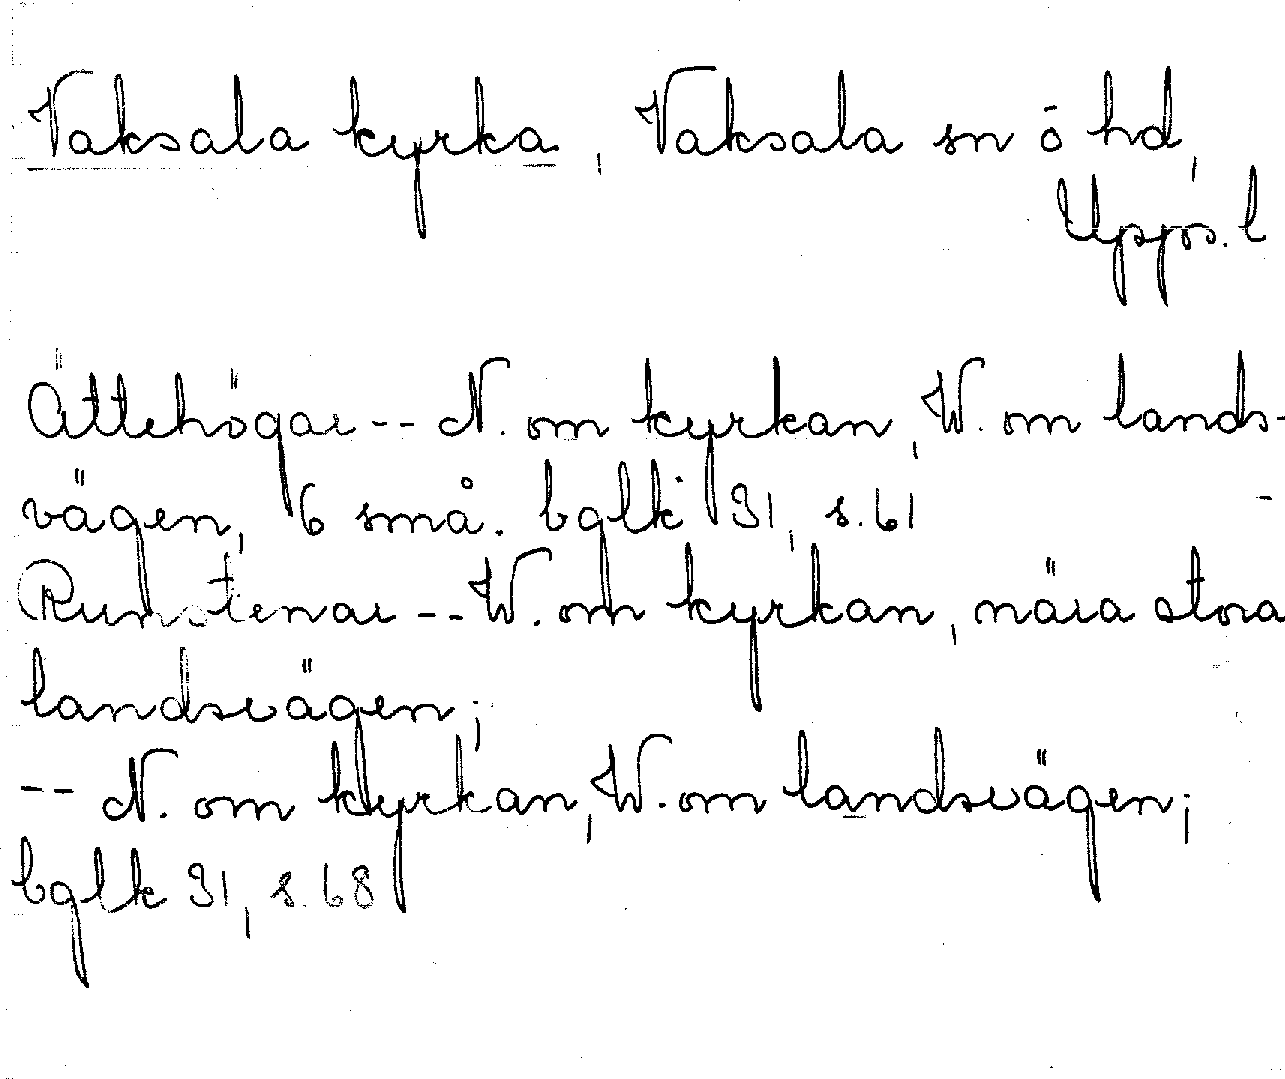 Vaksala kyrka, Vaksala sn o hd,
Upps. l
Ättehögar -- N. om kyrkan, W. om lands-
vägen, 6 små. bglk 31, s. 61
Runstenar -- W. om kyrkan, nära stora
landsvägen;
-- N. om kyrkan, W. om landsvägen;
bglk 31, s. 68